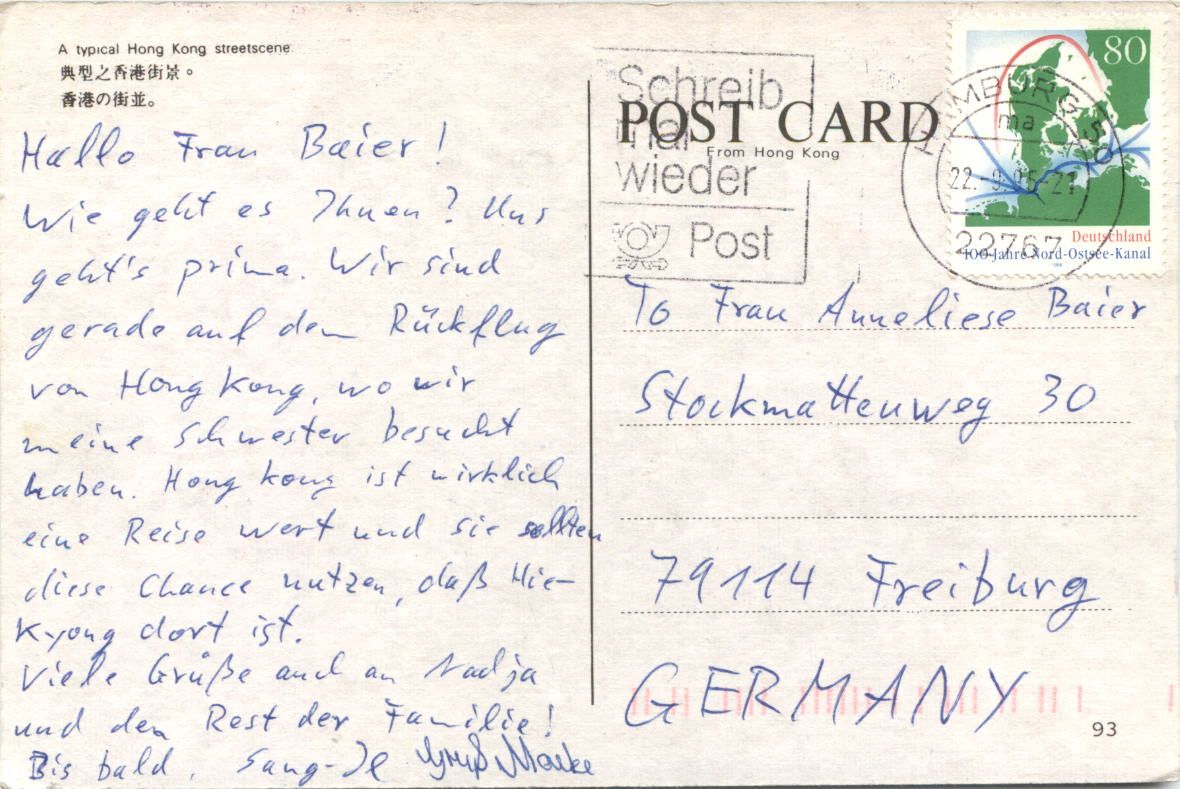 A typical Hong Kong streetscene
典型之香港街景。
香港の街並。
Hallo Frau Baier!
Wie geht es Ihnen? Uns
geht's prima. Wir sind
gerade auf dem Rückflug
von Hong Kong, wo wir
meine Schwester besucht
haben. Hong Kong ist wirklich
eine Reise wert und sie sollten
diese Chance nutzen, daß Hie-
Kyong dort ist.
Viele Grüße auch an Nadja
und den Rest der Familie!
Bis bald, Sang-Il Gruß Maike
POST CARD
From Hong Kong
Schreib
mal
wieder
Post
HAMBURG
ma
22.-9.95-21
22767
80
Deutschland
100 Jahre Nord-Ostsee-Kanal
To Frau Anneliese Baier
Stockmattenweg 30
79114 Freiburg
GERMANY
93